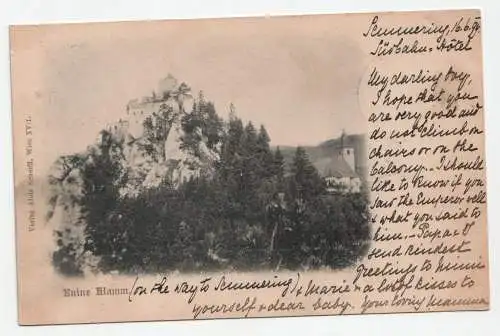 Semmering 16.6.
Südbahn-Hotel
My darling boy,
I hope that you
are very good and
do not climb on
chairs or on the
balcony. I should
like to know if you
saw the Emperor well
& what you said to
him. Papa &
send kindest
greetings to Minni
Ruine Klamm. (on the way to Semmering) & Marie & a lot of kisses to
yourself & dear baby. Your loving Mamma
Verlag Alois Wien XV/1.